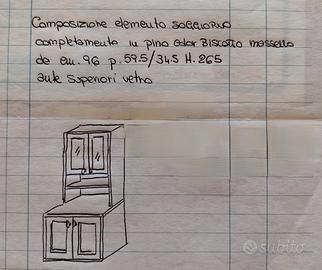 Composizione elemento SOGGIORNO
completamente in pino color BISCOTTO massello
da cm. 96 p. 59.5/34.5 H. 265
ante superiori vetro
subito